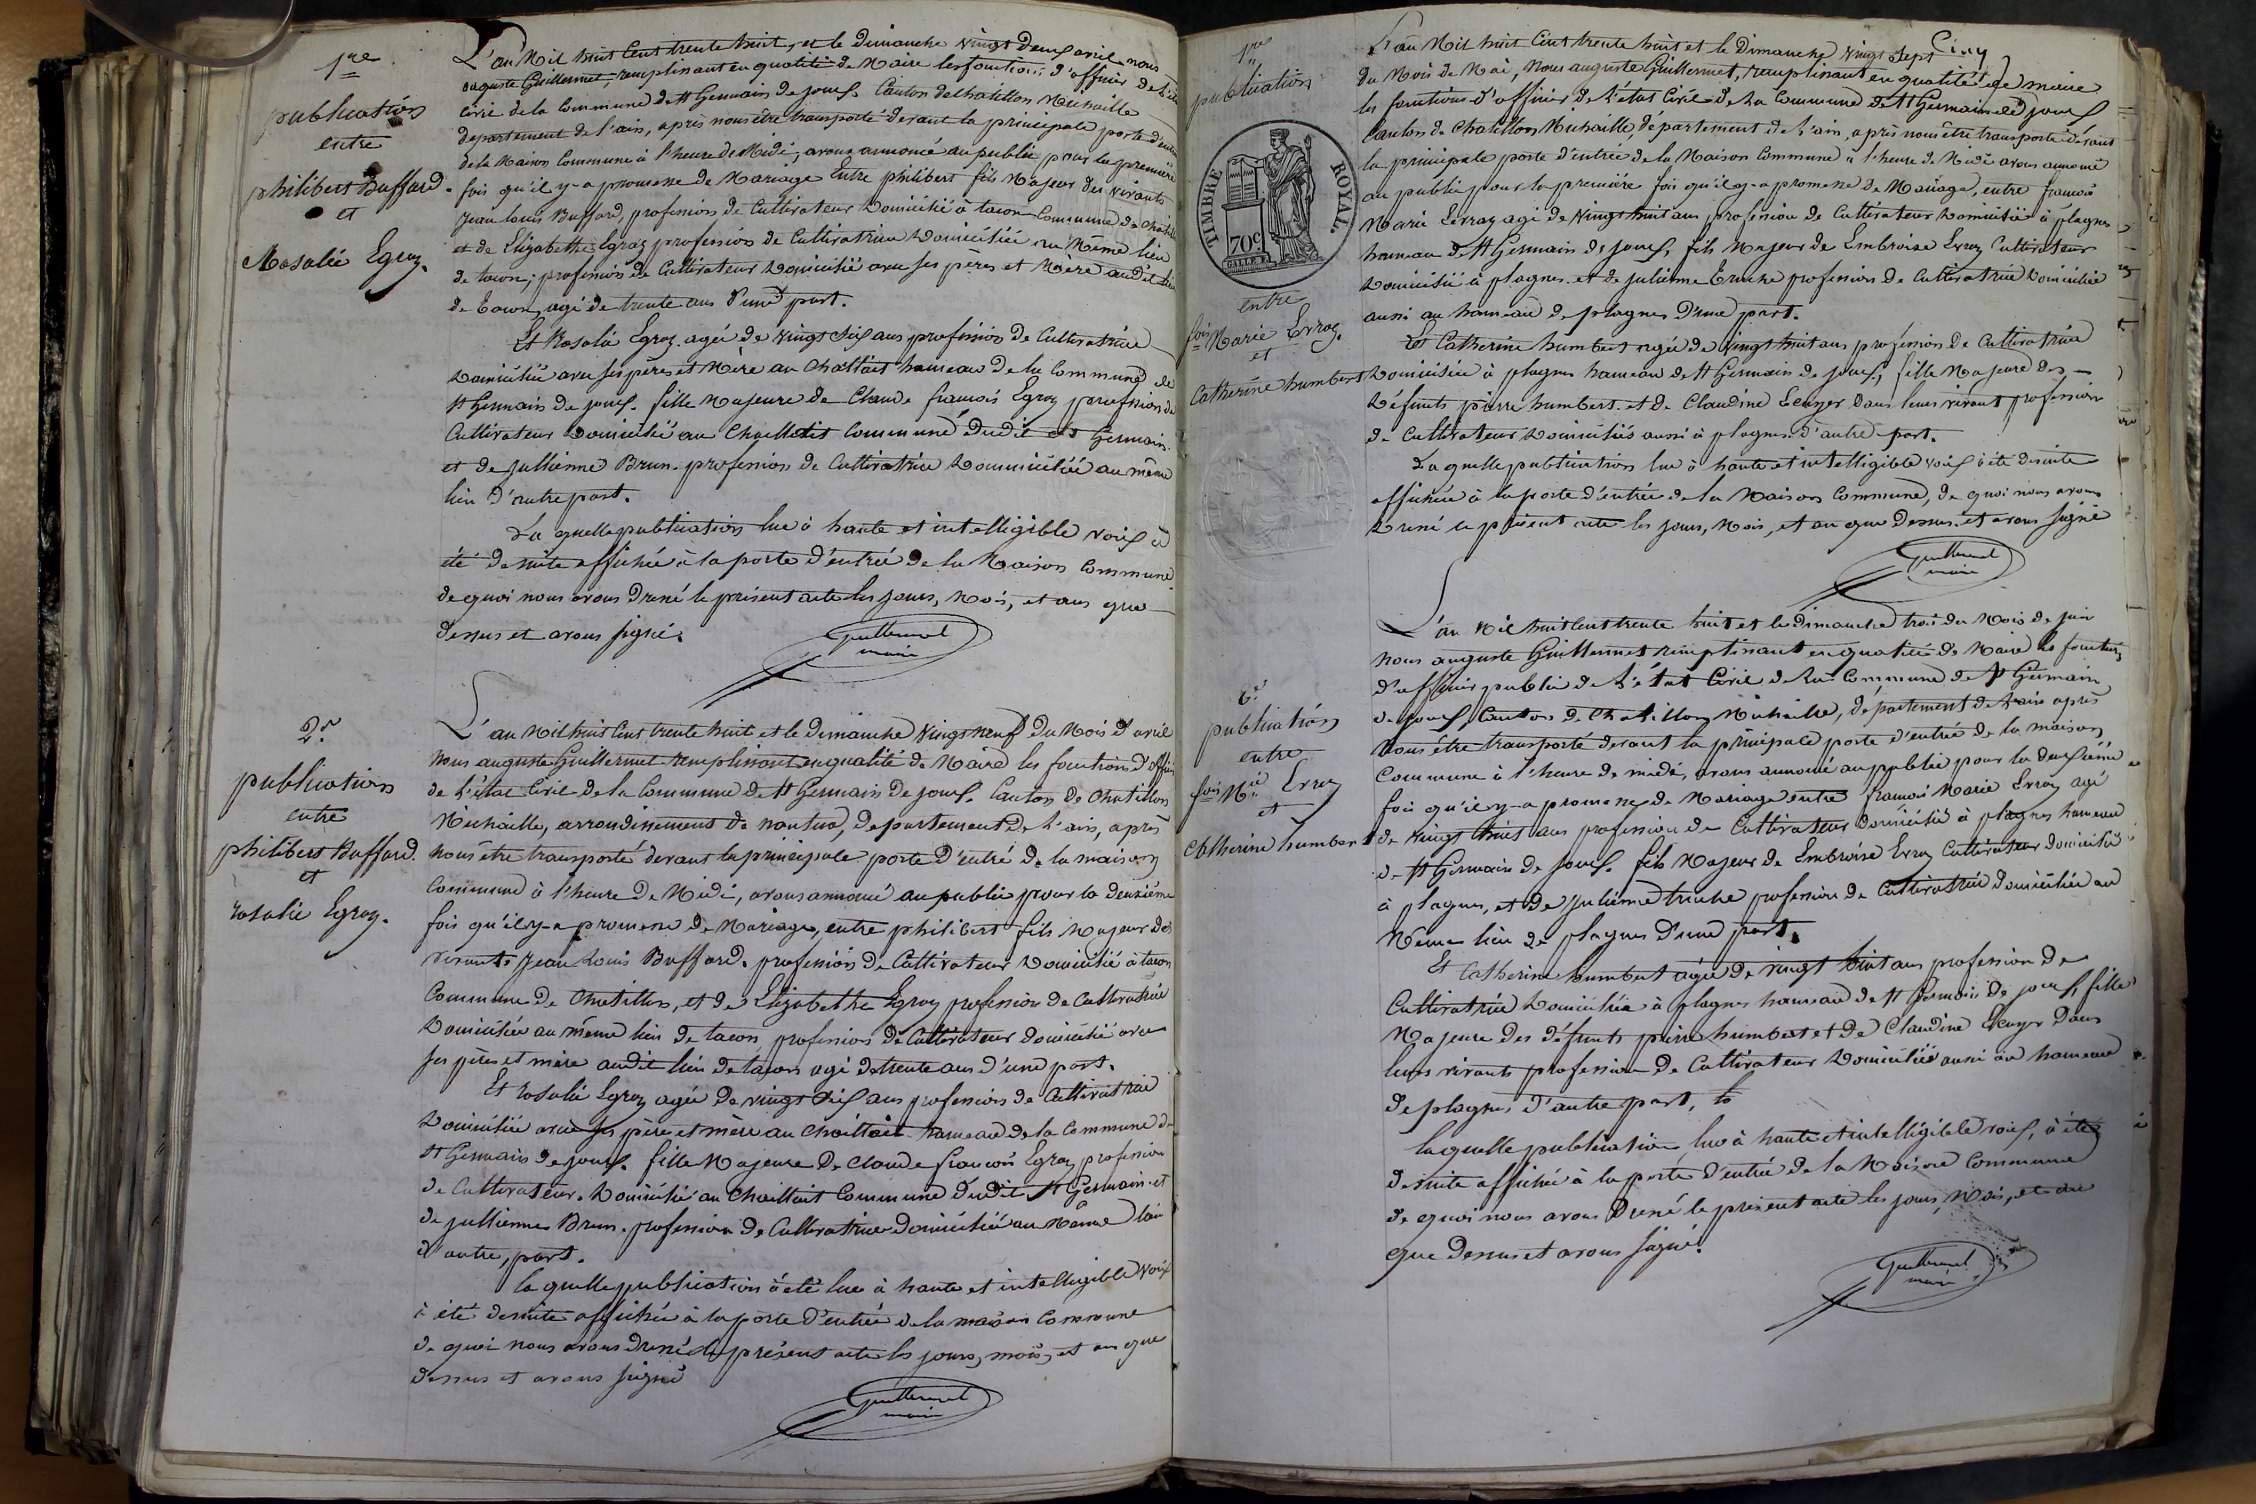 1re
publication
entre
philibert Buffard.
et
Rosalie Egroz.
L'an Mil huit Cent trente huit, et le dimanche vingt deux avril nous
auguste Guillermet, remplissant en qualité de Maire les fonctions d'officier de l'état
Civil de la Commune de St Germain de joux. Canton de Chatillon Michaille
département de l'ain, après nous être transporté devant la principale porte d'entrée
de la Maison Commune à l'heure de Midi, avons annoncé au public pour la première
fois qu'il y-a promesse de Mariage Entre philibert fils Majeur des vivants
Jean louis Buffard, profession de Cultivateur Domicilié à tacon Commune de Chatillon
et de Elizabethe Egroz profession de Cultivatrice Domiciliée au Même lieu
de tacon, profession de Cultivateur Domicilié avec ses pères et Mère audit lieu
de tacon, agé de trente ans d'une part.
Et Rosalie Egroz. agée de vingt six ans profession de Cultivatrice
Domiciliée avec ses pères et Mère au Chattait hameau de la Commune de
St Germain de joux. fille Majeure de Claude francois Egroz profession de
Cultivateur Domicilié au Chailletit Commune dudit St Germain.
et de Jullienne Brun. profession de Cultivatrice Domiciliée au même
lieu d'autre part.
La quelle publication lue à haute et intelligible voix à
été de suite affichée à la porte d'entrée de la Maison Commune
de quoi nous avons Dressé le présent acte les jours, Mois, et ans que
dessus et avons signé.
Guillermet
maire
2e
publication
entre
philibert Buffard.
et
rosalie Egroz.
L'an Mil huit Cent trente huit et le dimanche vingt neuf du Mois d'avril
Nous auguste Guillermet remplissant en qualité de Maire les fonctions d'officier
de l'état Civil de la Commune de St Germain de joux. Canton de Chatillon
Michaille, arrondissement de nantua, département de l'ain, après
nous être transporté devant la principale porte d'entré de la maison
Commune à l'heure de Midi, avons annoncé au public pour la deuxième
fois qu'il y-a promesse de Mariage, entre philibert fils Majeur des
vivants Jean Louis Buffard. profession de Cultivateur Domicilié à tacon
Commune de Chatillon, et de Elizabethe Egroz profession de Cultivatrice
Domiciliée au même lieu de tacon, profession de Cultivateur domicilié avec
ses pères et mère audit lieu de tacon agé de trente ans d'une part.
Et rosalie Egroz agée de vingt six ans profession de Cultivatrice
Domiciliée avec ses père et mère au Chaittait hameau de la Commune de
St Germain de joux. fille Majeure de Claude francois Egroz profession
de Cultivateur. Domicilié au Chaittait Commune dudit St Germain et
de jullienne Brun. profession de Cultivatrice domiciliée au Même lieu
d'autre, part.
la quelle publication à été lue à haute et intelligible voix
à été desuite affichée à la porte d'entrée de la maison Commune
de quoi nous avons dressé le présent acte les jours, mois, et an que
dessus et avons signé
Guillermet
maire
Cinq
1re
publication
TIMBRE ROYAL
70c
entre
fois Marie Evroz.
et
Catherine humbert
L'an Mil huit Cent trente huit et le Dimanche vingt Sept
du Mois de Mai, Nous auguste Guillermet, remplissant en qualité de maire
les fonctions d'officier de l'état Civil de la Commune de St Germain de joux
Canton de Chatillon Michaille, département de l'ain, après nous être transporté devant
la principale porte d'entrée de la Maison Commune à l'heure de Midi avons annoncé
au public pour la première fois qu'il y-a promesse de Mariage, entre francois
Marie Evroz agé de vingt huit ans profession de Cultivateur Domicilié à plagnes
hameau de St Germain de joux, fils Majeur de Embroise Evroz Cultivateur
Domicilié à plagnes. et de julienne truche profession de Cultivatrice Domiciliée
aussi au hameau de plagnes d'une part.
Et Catherine humbert agée de vingt huit ans profession de Cultivatrice
Domiciliée à plagnes hameau de St Germain de joux, fille Majeure des
Défunts pierre humbert. et de Claudine Ecuyer Dans leurs vivant profession
de Cultivateur Domiciliés aussi à plagnes d'autre part.
La quelle publication lue à haute et intelligible voix à été desuite
affichée à la porte d'entrée de la Maison Commune, de quoi nous avons
Dressé le présent acte les jours, Mois, et an que Dessus. et avons signé
Guillermet
maire
2e
publication
entre
fois Mie Evroz
et
Catherine humbert
L'an Mil huit Cent trente huit et le dimanche trois du Mois de juin
Nous auguste Guillermet remplissant en qualité de Maire les fonctions
d'officier public de l'état Civil de la Commune de St Germain
de joux, Canton de Chatillon Michaille, département de l'ain après
Nous être transporté devant la principale porte d'entrée de la maison
Commune à l'heure de midi, avons annoncé au public pour la deuxième
fois qu'il y-a promesse de Mariage entre francois Marie Evroz agé
de vingt huit ans profession de Cultivateur domicilié à plagnes hameau
de St Germain de joux. fils Majeur de Embroise Evroz Cultivateur domicilié
à plagnes, et de julienne truche profession de Cultivatrice domiciliée au
Même lieu de plagnes d'une part.
Et Catherine humbert agée de vingt huit ans profession de
Cultivatrice Domiciliée à plagnes hameau de St Germain de joux, fille
Majeure des défunts pierre humbert et de Claudine Ecuyer Dans
leurs vivants profession de Cultivateur Domiciliés aussi au hameau
de plagnes d'autre part,
laquelle publication, lue à haute et intelligible voix, à été
desuite affichée à la porte d'entrée de la Maison Commune
de quoi nous avons Dressé le présent acte les jours, Mois, et an
que dessus et avons signé.
Guillermet
maire